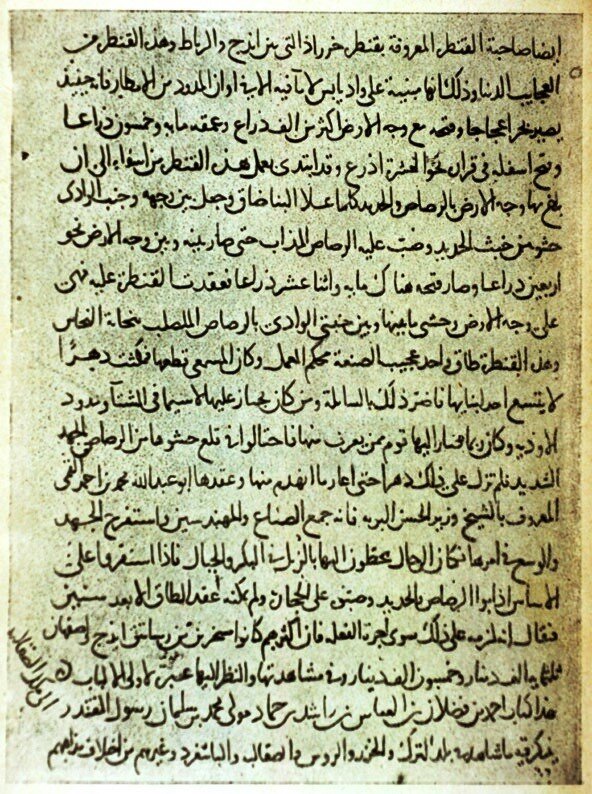 ايضا صاحبة القنطرة المعروفة بقنطرة خرراذ التى بين ايذج والرباط وهذه القنطرة من
العجايب الدنيا وذلك انها مبنية على واد يابس لا ماء فيه الا فى اوان المدود من الامطار فانه حينيذ
يصير بحرا عجاجا وفتحه مع وجه الارض اكثر من الف ذراع وعمقه مايه وخمسون ذراعا
وفتح اسفله فى قراره نحو العشرة اذرع وقد ابتدى بعمل هذه القنطرة من اسفله الى ان
بلغ بها وجه الارض بالرصاص والحديد كلما علا البنا ضاق وجعل بين وجهه وجنب الوادى
حشو من خبث الحديد وصب عليه الرصاص المذاب حتى صار بينه وبين وجه الارض نحو
اربعين ذراعا وصار فتحه هناك مايه واثنا عشر ذراعا فعقدت القنطرة عليه فهى
على وجه الارض وحشى ما بينها وبين جنبتى الوادى بالرصاص المصلب بنحاتة النحاس
وهذه القنطرة طاق واحد عجيب الصنعة محكم العمل وكان المسمعى قطعها فمكثت دهرًا
لا يتسع احد لبنائها فاضر ذلك بالسابلة ومن كان يجتاز عليها لا سيما فى الشتآ ومدود
الاوديه وكان ربما صار اليها قوم ممن يعرب منها فاحتالوا فى قلع حشوها من الرصاص بالجهد
الشديد فلم تزل على ذلك دهرا حتى اعاد ما انهدم منها وعقدها ابو عبدالله محمد بن احمد القمى
المعروف بالشيخ وزير الحسن البويه فانه جمع الصناع والمهندسين واستفرغ الجهد
والوسع فى امرها فكان الرجال يحطون اليها بالزبل فى البكر والحبال فاذا استقروا على
الاساس اذابوا الرصاص بالحديد وصبوه على الحجاره ولم يمكنه عقد الطاق الا بعد سنتين
فيقال انه لزمه على ذلك سوى اجرة الفعله فان اكثرهم كانوا مسخرين من رساتيق ايذج واصفهان
ثلثمايه الف دينار وخمسون الف دينار وفى مشاهدتها والنظر اليها عبرة لاولى الالباب
هذا كتاب احمد بن فضلان بن العباس بن راشد بن حماد مولى محمد بن سلمان رسول المقتدر
الى ملك الصقالبة
يذكر فيه ما شاهد فى بلد الترك والخزر والروس والصقالب والباشغرد وغيرهم من اختلاف مذاهبهم